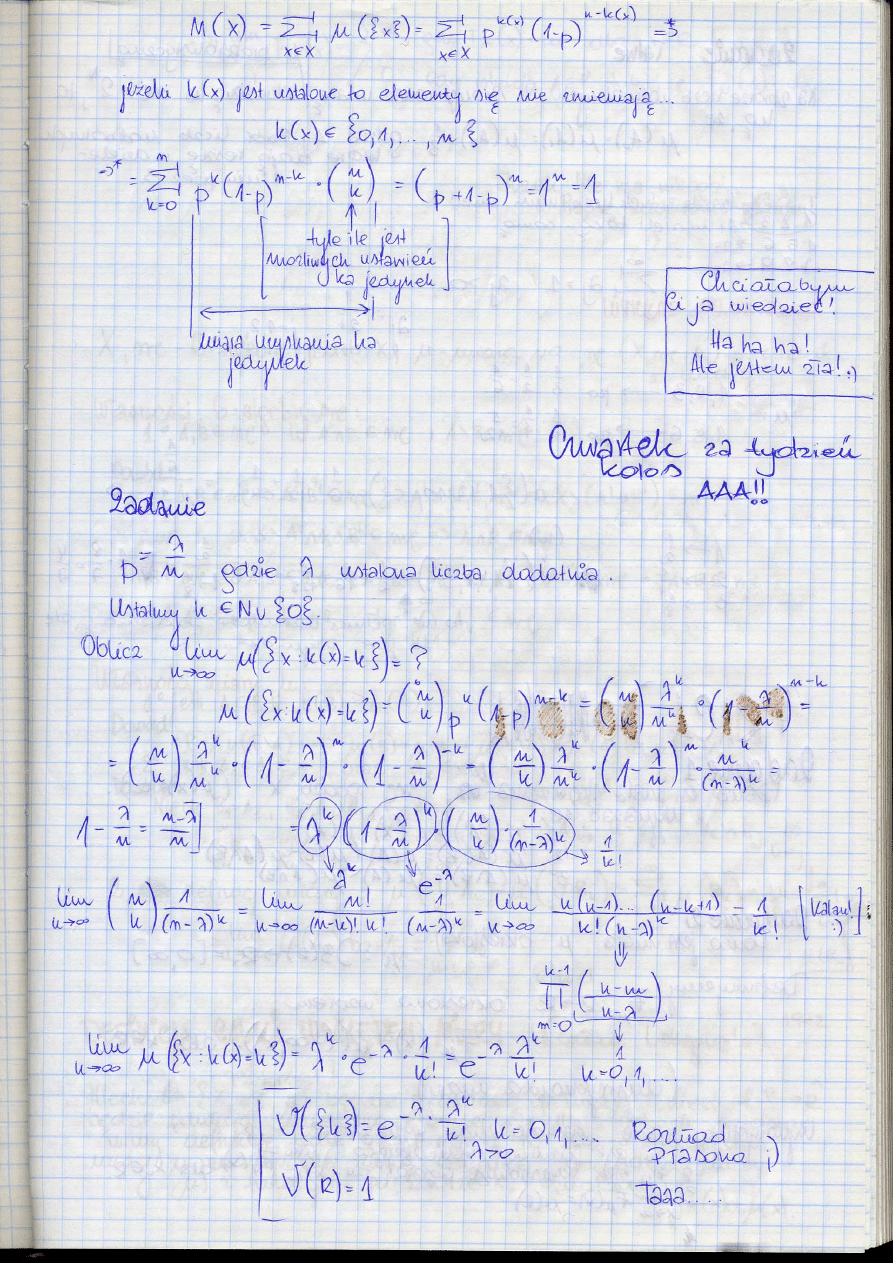 M(X) = Σ_{x∈X} μ({x}) = Σ_{x∈X} p^{k(x)} (1-p)^{n-k(x)} =*
jeżeli k(x) jest ustalone to elementy się nie zmieniają...
k(x) ∈ {0,1,..., n}
=* = Σ_{k=0}^{n} p^k (1-p)^{n-k} · (n k) = (p+1-p)^n = 1^n = 1
tyle ile jest
możliwych ustawień
ka jedynek
miara uzyskania ka
jedynek
Chciałabym
Ci ja wiedzieć!
Ha ha ha!
Ale jestem zła! :)
Czwartek za tydzień
kolos
AAA!!
Zadanie
p = λ/n gdzie λ ustalona liczba dodatnia.
Ustalmy k ∈ N∪{0}.
Oblicz lim_{n→∞} μ({x: k(x)=k}) = ?
μ({x: k(x)=k}) = (n k) p^k (1-p)^{n-k} = (n k) λ^k/n^k · (1 - λ/n)^{n-k} =
= (n k) λ^k/n^k · (1 - λ/n)^n · (1 - λ/n)^{-k} = (n k) λ^k/n^k · (1 - λ/n)^n · n^k/(n-λ)^k =
1 - λ/n = (n-λ)/n] = λ^k (1 - λ/n)^k · (n k) · 1/(n-λ)^k
λ^k e^{-λ} 1/k!
lim_{n→∞} (n k) 1/(n-λ)^k = lim_{n→∞} n!/((n-k)! k!) 1/(n-λ)^k = lim_{n→∞} n(n-1)... (n-k+1)/(k!(n-λ)^k) - 1/k! [Kalau! :)]
⇓
Π_{m=0}^{k-1} ((n-m)/(n-λ))
↓
1
lim_{n→∞} μ({x: k(x)=k}) = λ^k · e^{-λ} · 1/k! = e^{-λ} λ^k/k! k=0,1,....
V({k}) = e^{-λ} · λ^k/k! k=0,1,.... Rozkład
λ>0 Ptasona ;)
V(R) = 1 Taaa....